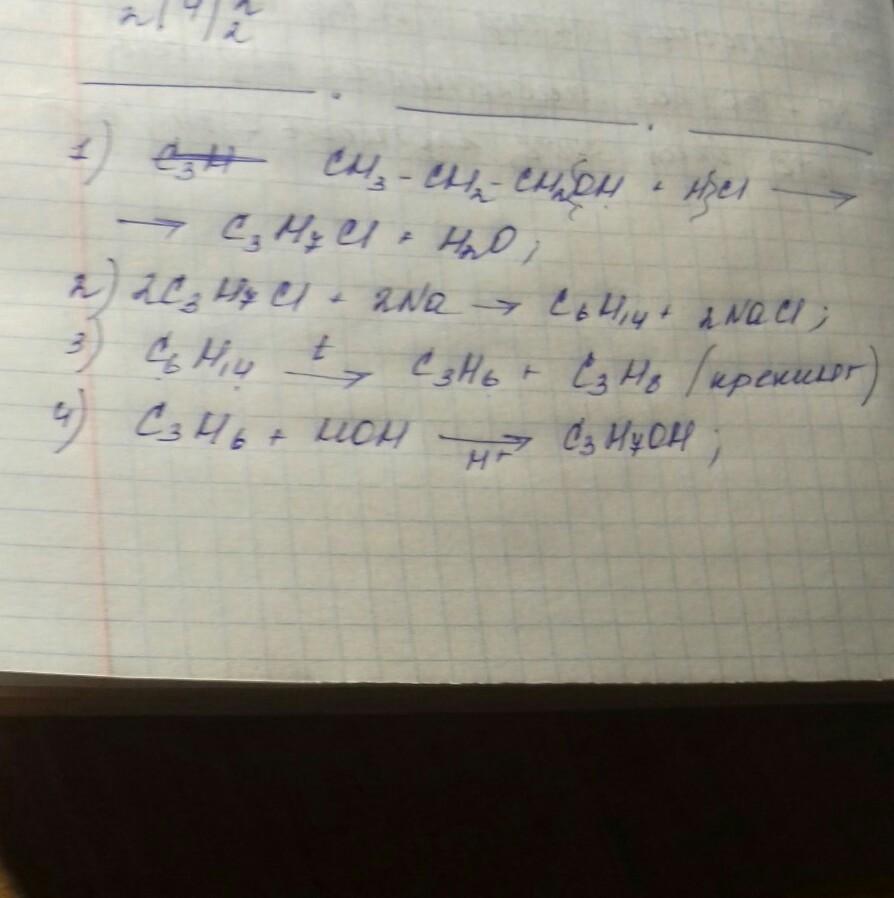 1) C₃H CH₃ - CH₂ - CH₂OH + HCl →
→ C₃H₇Cl + H₂O;
2) 2C₃H₇Cl + 2Na → C₆H₁₄ + 2NaCl;
3) C₆H₁₄ t→ C₃H₆ + C₃H₈ (крекинг)
4) C₃H₆ + HOH →H⁺ C₃H₇OH;